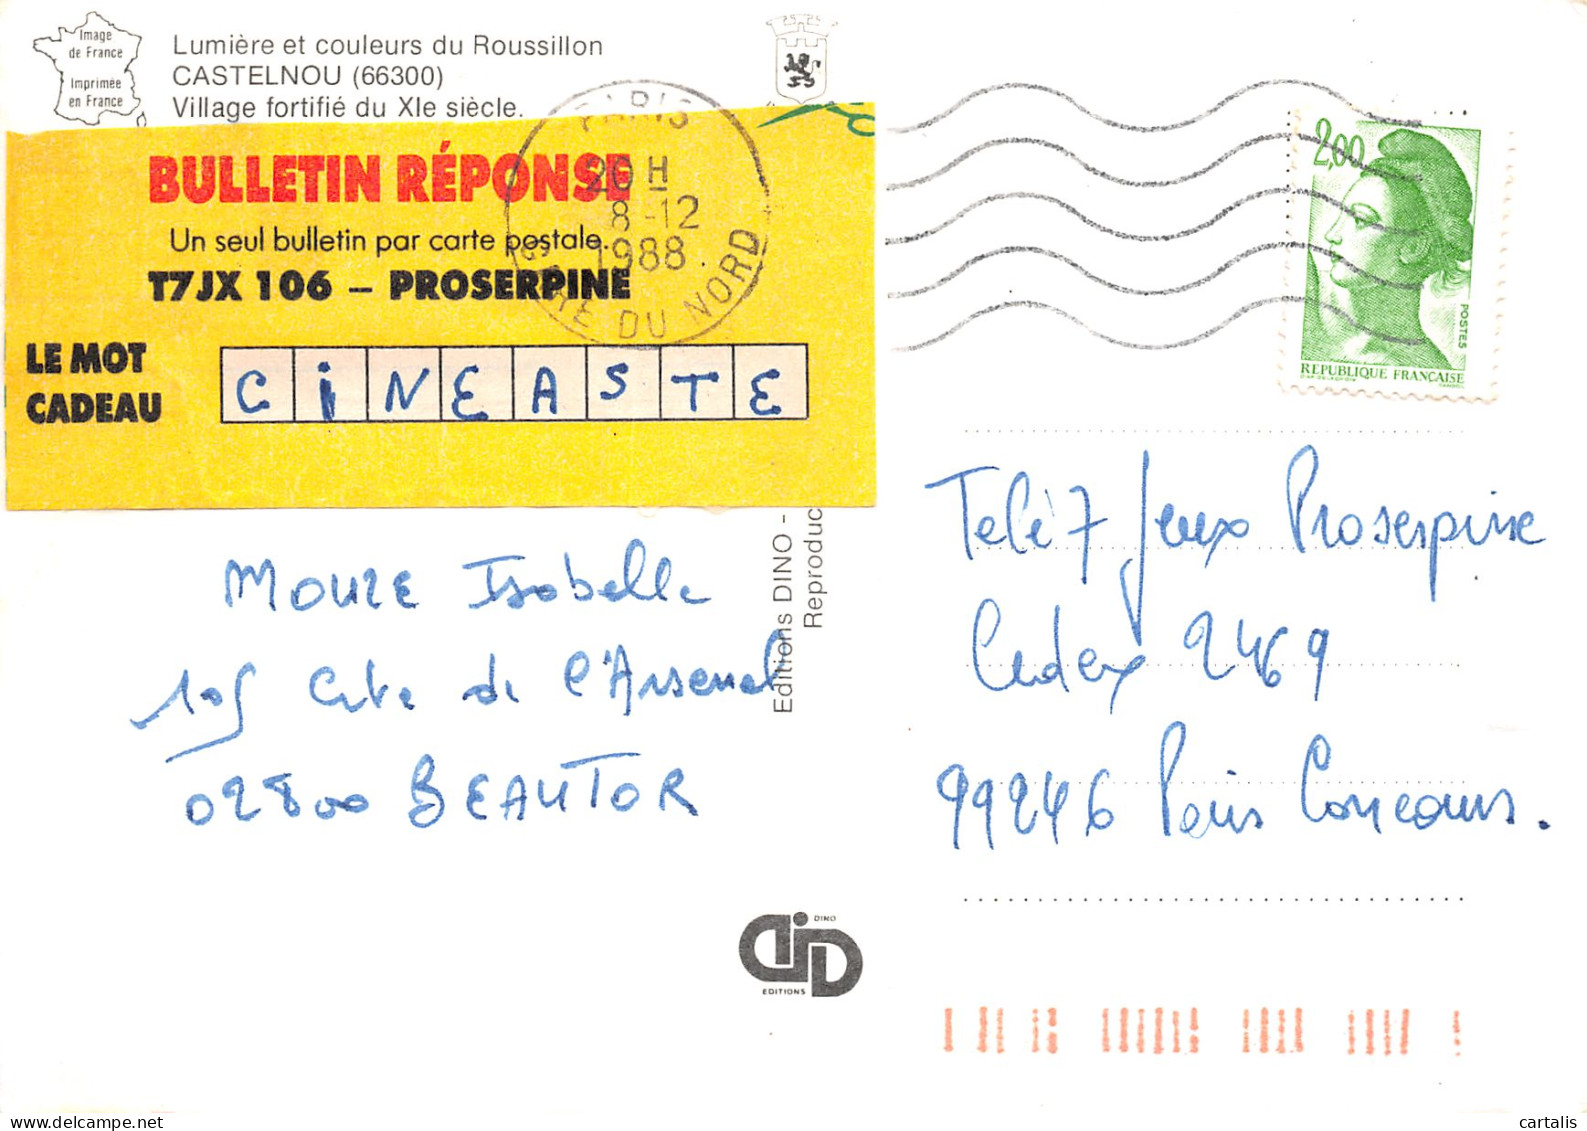 Image
de France
Imprimée
en France
Lumière et couleurs du Roussillon
CASTELNOU (66300)
Village fortifié du XIe siècle.
BULLETIN RÉPONSE
Un seul bulletin par carte postale.
T7JX 106 – PROSERPINE
LE MOT
CADEAU
CiNEASTE
PARIS
20 H
8-12
1988
GARE DU NORD
2,00
POSTES
REPUBLIQUE FRANÇAISE
Editions DINO -
Reproduc
MOURE Isabelle
105 Cite de l'Arsenal
02800 BEAUTOR
Telé 7 Jeux Proserpine
Cedex 2469
99246 Paris Concours.
DINO
EDITIONS
cartalis